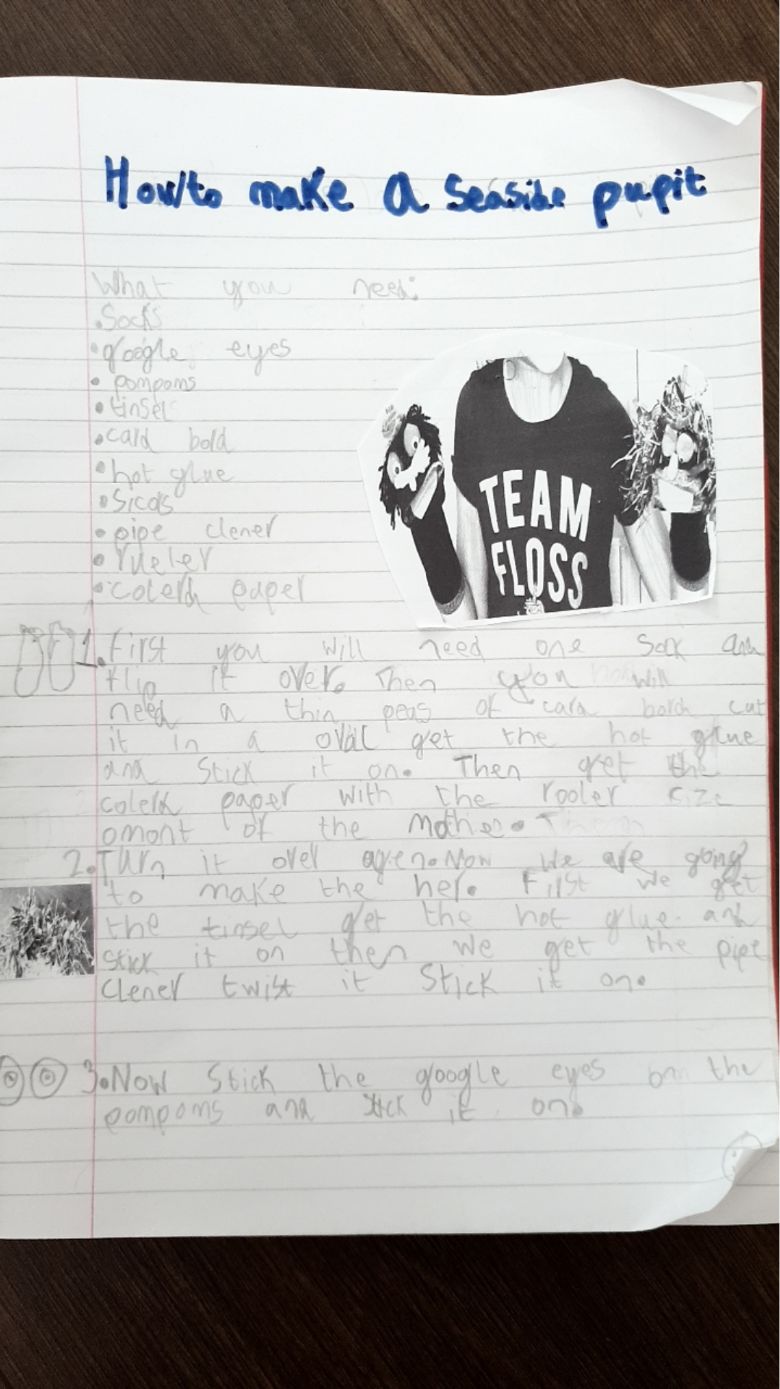 How to make a seaside pupit
What you need:
• Socks
• google eyes
• pompoms
• tinsel
• card bord
• hot glue
• Sicors
• pipe clener
• rueler
• colerd paper
TEAM
FLOSS
1. First you will need one sock and
flip it over. Then you will
need a thin peas of card bord cut
it in a oval get the hot glue
and stick it on. Then get the
colerd paper with the rooler size
omont of the
2. Turn it over agen. Now we are going
to make the her. First we get
the tinsel get the hot glue and
stick it on then we get the pipe
clener twist it stick it on.
3. Now stick the google eyes on the
pompoms and stick it on.